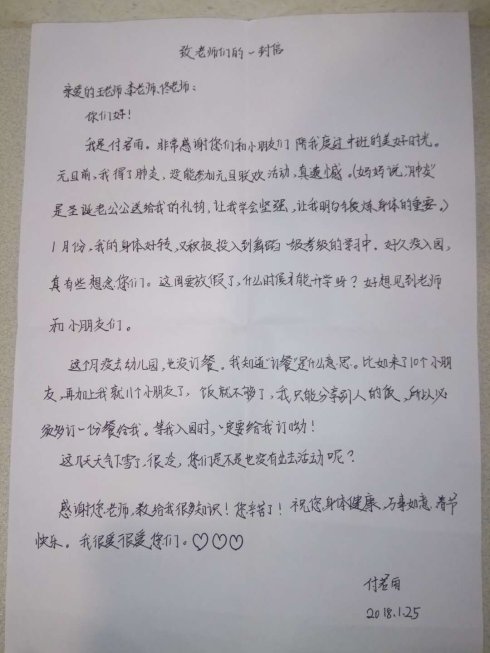 致老师们的一封信
亲爱的王老师、李老师、佟老师：
你们好！
我是付若雨。非常感谢您们和小朋友们陪我度过中班的美好时光。
元旦前，我得了肺炎，没能参加元旦联欢活动，真遗憾。（妈妈说“肺炎”
是圣诞老公公送给我的礼物，让我学会坚强，让我明白锻炼身体的重要。）
1月份，我的身体好转，又积极投入到舞蹈一级考级的学习中。好久没入园，
真有些想念您们。这回要放假了，什么时候才能开学呀？好想见到老师
和小朋友们。
这个月没去幼儿园，也没订餐。我知道“订餐”是什么意思。比如来了10个小朋
友，再加上我就11个小朋友了，饭就不够了，我只能分享别人的饭，所以必
须多订一份餐给我。等我入园时，一定要给我订呦！
这几天天气下雪了，很冷，您们是不是也没有出去活动呢？
感谢您老师，教给我很多知识！您辛苦了！祝您身体健康，万事如意，春节
快乐。我很爱很爱您们。♡♡♡
付若雨
2018.1.25